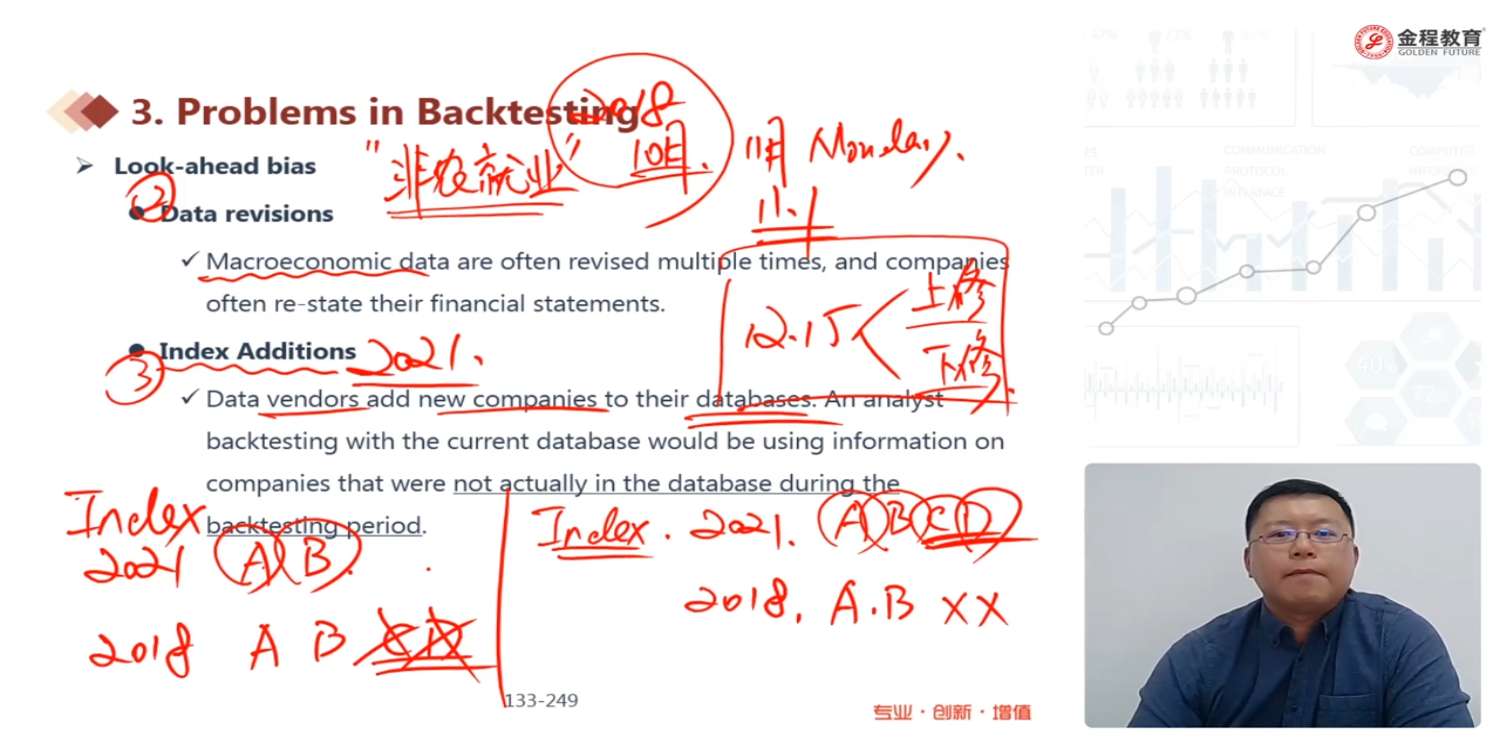 金程教育
GOLDEN FUTURE
3. Problems in Backtesting
2018
10月.
11月 Monday.
"非农就业"
11.1
Look-ahead bias
② Data revisions
Macroeconomic data are often revised multiple times, and companies
often re-state their financial statements.
12.15 < 上修
下修
③ Index Additions 2021.
Data vendors add new companies to their databases. An analyst
backtesting with the current database would be using information on
companies that were not actually in the database during the
backtesting period.
Index
2021 A B
2018 A B C D
Index. 2021. A B C D
2018. A.B X X
133-249
专业·创新·增值